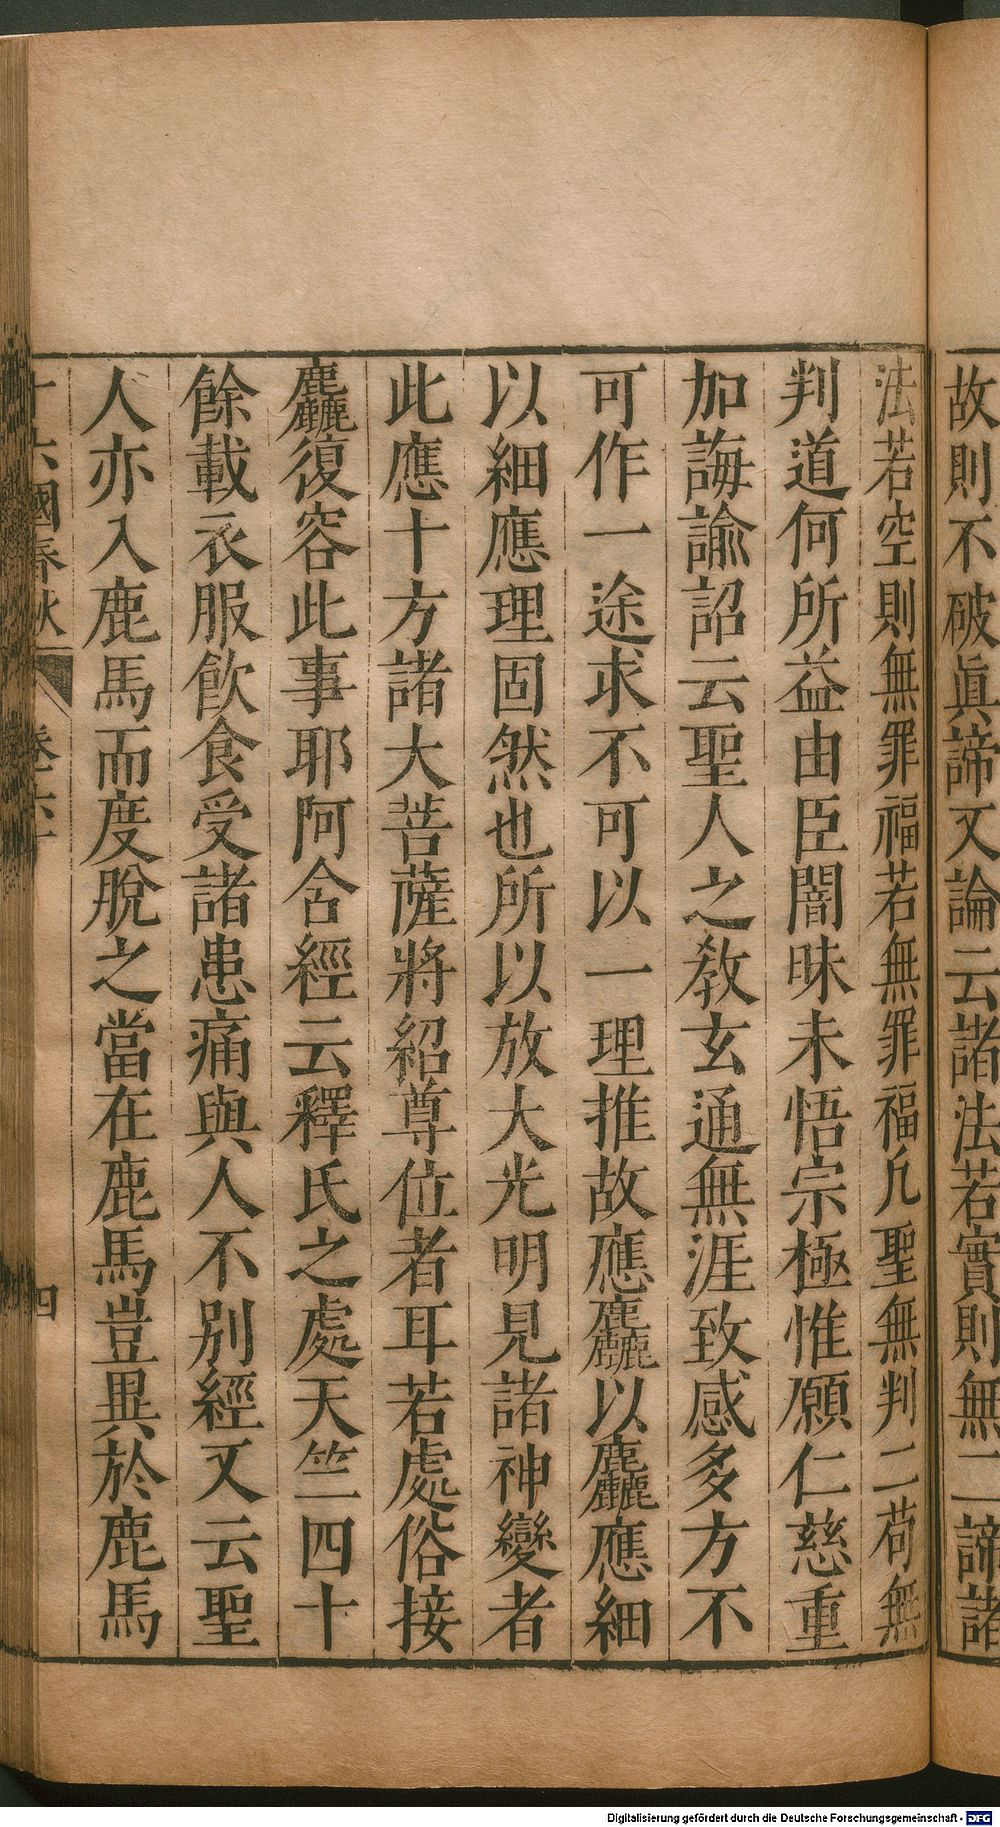 故則不破眞諦又論云諸法若實則無二諦諸
法若空則無罪福若無罪福凡聖無判二苟無
判道何所益由臣闇昧未悟宗極惟願仁慈重
加誨諭詔云聖人之敎玄通無涯致感多方不
可作一途求不可以一理推故應麤以麤應細
以細應理固然也所以放大光明見諸神變者
此應十方諸大菩薩將紹尊位者耳若處俗接
麤復容此事耶阿含經云釋氏之處天竺四十
餘載衣服飲食受諸患痛與人不別經又云聖
人亦入鹿馬而度脫之當在鹿馬豈異於鹿馬
十六國春秋 卷六十 四
Digitalisierung gefördert durch die Deutsche Forschungsgemeinschaft - DFG